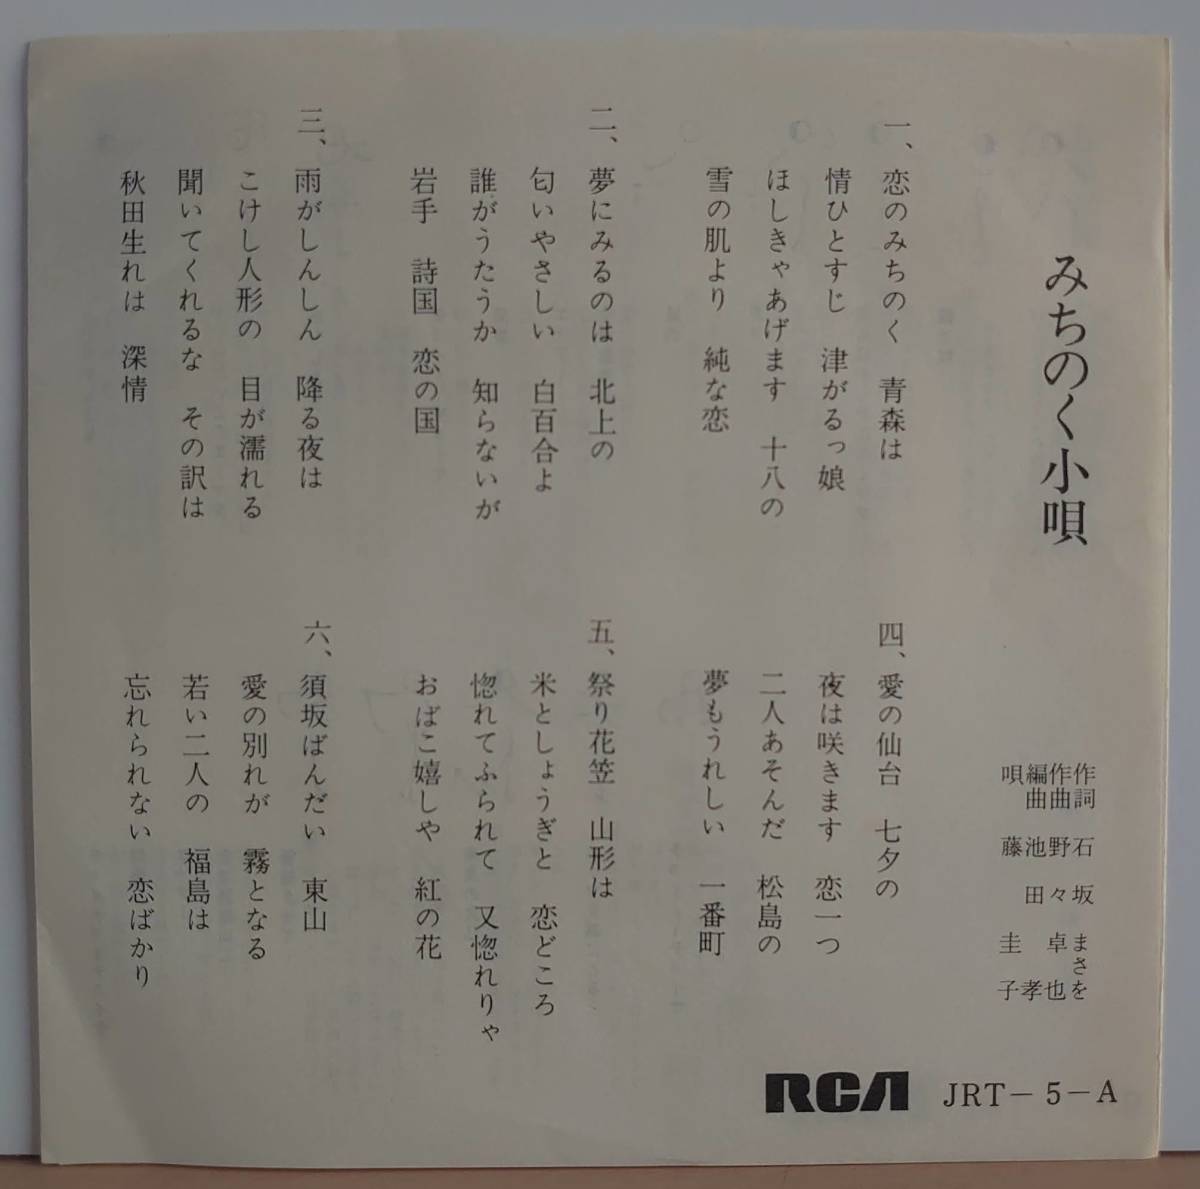 みちのく小唄
作詞 石坂まさを
作曲 野々卓也
編曲 池田孝
唄 藤圭子
一、恋のみちのく 青森は
情ひとすじ 津がるっ娘
ほしきゃあげます 十八の
雪の肌より 純な恋
二、夢にみるのは 北上の
匂いやさしい 白百合よ
誰がうたうか 知らないが
岩手 詩国 恋の国
三、雨がしんしん 降る夜は
こけし人形の 目が濡れる
聞いてくれるな その訳は
秋田生れは 深情
四、愛の仙台 七夕の
夜は咲きます 恋一つ
二人あそんだ 松島の
夢もうれしい 一番町
五、祭り花笠 山形は
米としょうぎと 恋どころ
惚れてふられて 又惚れりゃ
おばこ嬉しや 紅の花
六、須坂ばんだい 東山
愛の別れが 霧となる
若い二人の 福島は
忘れられない 恋ばかり
RCA JRT-5-A